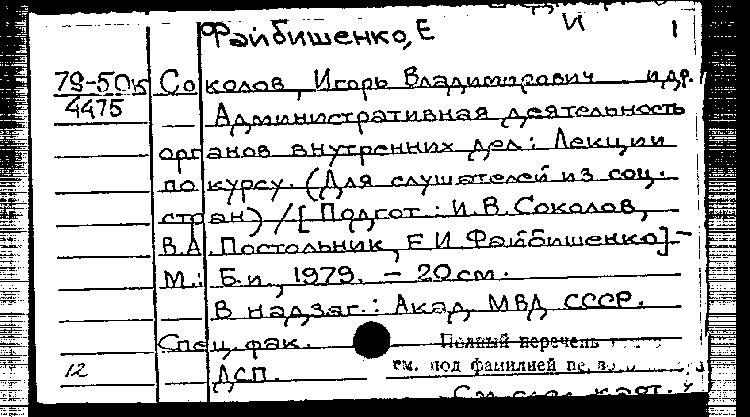 Файбишенко, Е И 1
79-50к Соколов, Игорь Владимирович и др.
4475 Административная деятельность
органов внутренних дел: Лекции
по курсу. (Для слушателей из соц.
стран) / [Подгот.: И.В. Соколов,
В.А. Постольник, Е.И. Файбишенко]. -
М.: Б.и., 1979. - 20см.
В надзаг.: Акад. МВД СССР.
Спец. фак. Полный перечень
12 ДСП. см. под фамилией